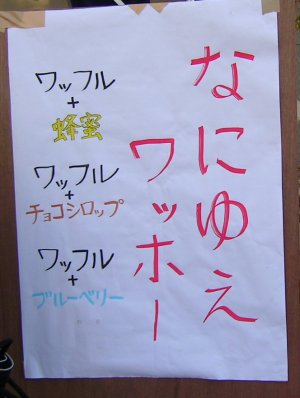 なにゆえ
ワッホー
ワッフル
+
蜂蜜
ワッフル
+
チョコシロップ
ワッフル
+
ブルーベリー